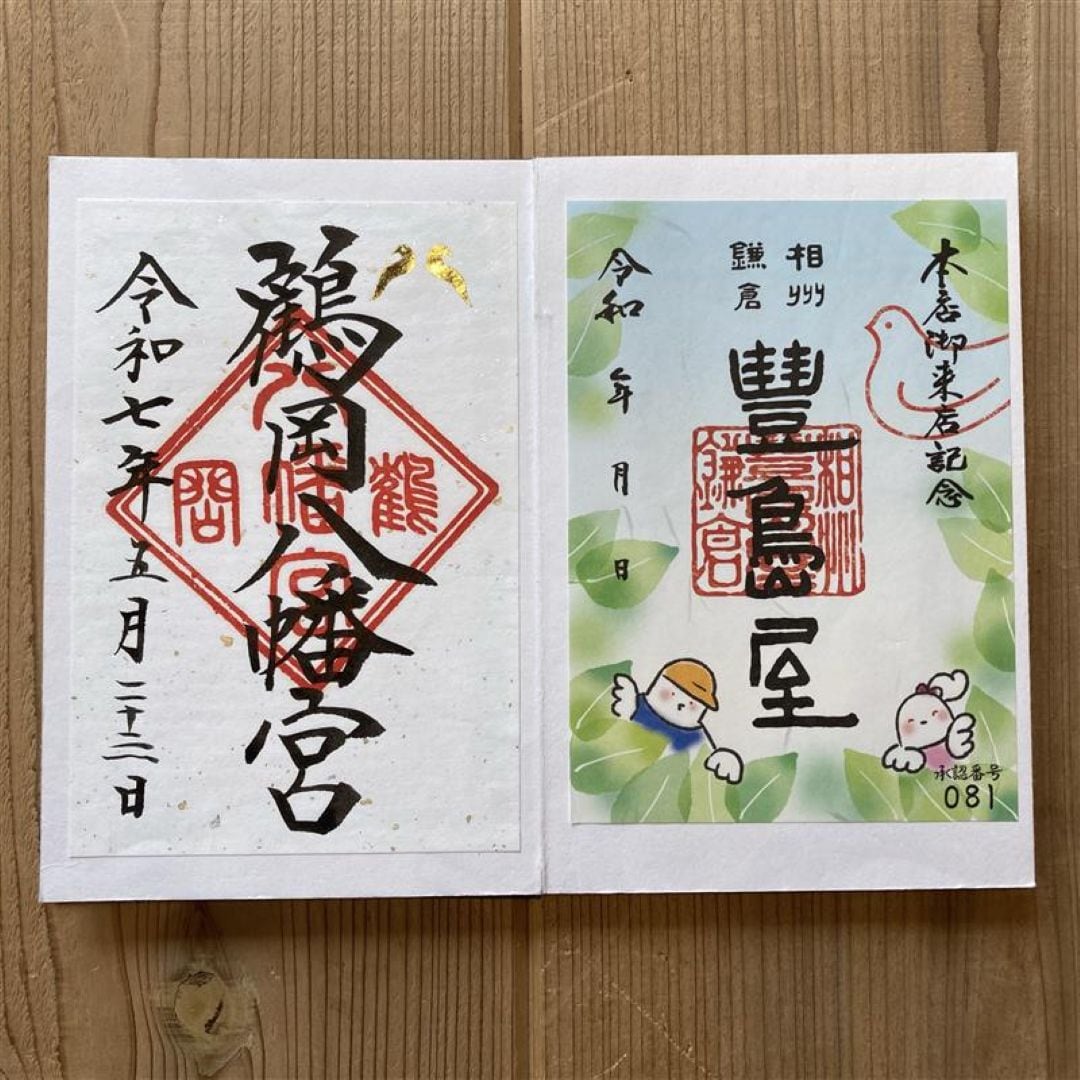 本店御来店記念
相州
鎌倉
豐島屋
相州
豐島屋
鎌倉
令和 年 月 日
承認番号
081
鶴岡八幡宮
鶴
八幡宮
岡
令和七年五月二十二日